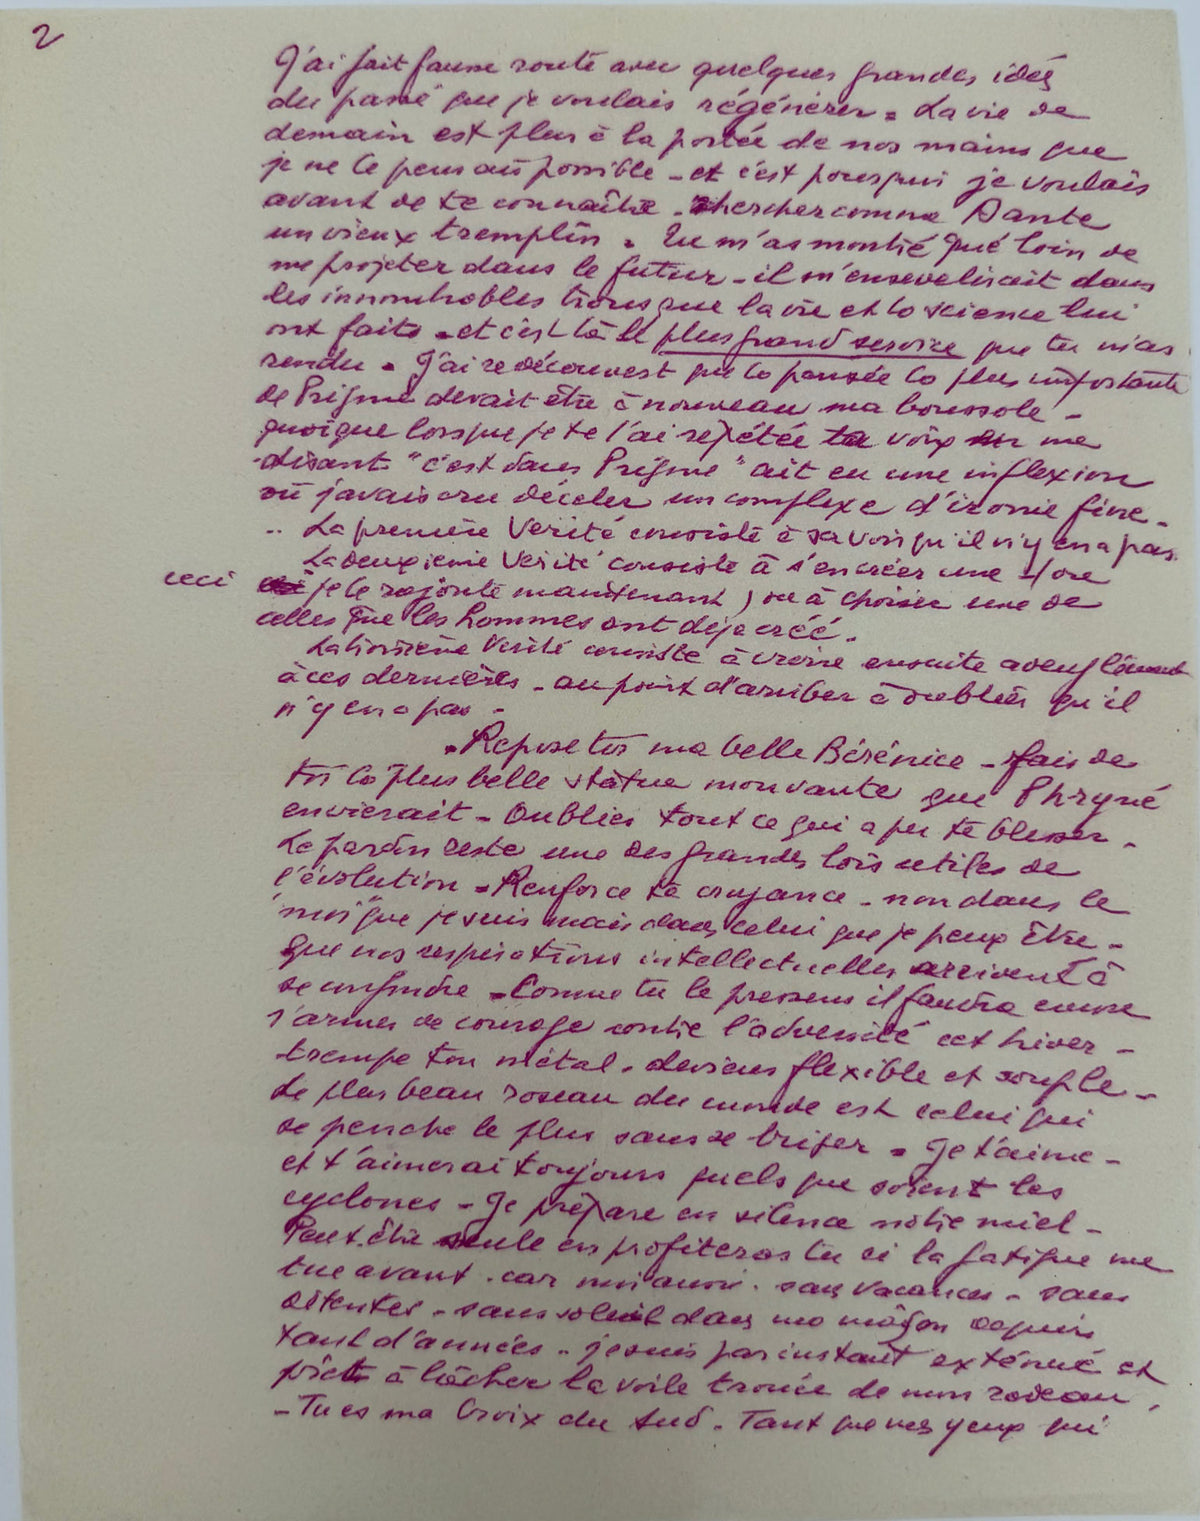 2
J'ai fait fausse route avec quelques grandes idées
du passé que je voulais régénérer = La vie de
demain est plus à la portée de nos mains que
je ne le pensais possible - et c'est pourquoi je voulais
avant de te connaître - chercher comme Dante
un vieux tremplin = Tu m'as montré que loin de
me projeter dans le futur - il m'ensevelirait dans
les innombrables trous que la vie et la science lui
ont faits - et c'est là le plus grand service que tu m'as
rendu = J'ai redécouvert que la pensée la plus importante
de Prisme devait être à nouveau ma boussole -
quoique lorsque je te l'ai répétée ta voix en me
disant "c'est dans Prisme" ait eu une inflexion
où j'avais cru déceler un complexe d'ironie fine -
.. La première Vérité consiste à savoir qu'il n'y en a pas
La deuxième Vérité consiste à s'en créer une - (ou
ceci je le rajoute maintenant) ou à choisir une de
celles que les hommes ont déjà créé -
La troisième Vérité consiste à croire ensuite aveuglément
à ces dernières - au point d'arriver à oublier qu'il
n'y en a pas -
- Repose toi ma belle Bérénice - fais de
toi la plus belle statue mouvante que Phryné
envierait - Oublies tout ce qui a pu te blesser -
Le pardon reste une des grandes lois utiles de
l'évolution = Renforce ta croyance - non dans le
"moi" que je suis mais dans celui que je peux être -
que nos respirations intellectuelles arrivent à
se confondre = Comme tu le pressens il faudra encore
s'armer de courage contre l'adversité cet hiver -
trempe ton métal - deviens flexible et souple -
Le plus beau roseau du monde est celui qui
se penche le plus sans se briser = Je t'aime -
et t'aimerai toujours quels que soient les
cyclones - Je prépare en silence notre miel -
Peut-être seule en profiteras tu si la fatigue me
tue avant - car moi aussi - sans vacances - sans
détentes - sans soleil dans ma maison depuis
tant d'années - je suis par instant exténué et
prêt à lâcher la voile trouée de mon radeau,
- Tu es ma Croix du Sud - Tant que mes yeux qui